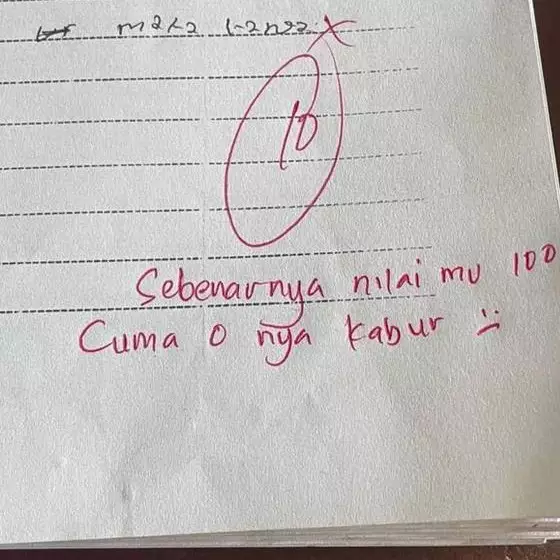 10
Sebenarnya nilai mu 100
Cuma 0 nya kabur :(